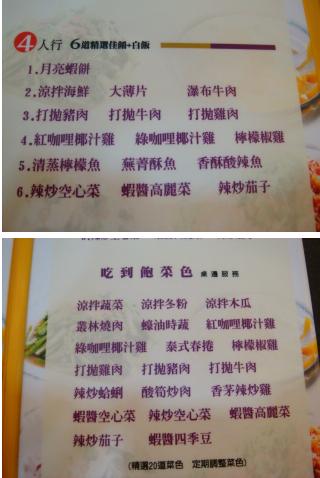 4人行 6道精選佳餚+白飯
1.月亮蝦餅
2.涼拌海鮮 大薄片 瀑布牛肉
3.打拋豬肉 打拋牛肉 打拋雞肉
4.紅咖哩椰汁雞 綠咖哩椰汁雞 檸檬椒雞
5.清蒸檸檬魚 蕪菁酥魚 香酥酸辣魚
6.辣炒空心菜 蝦醬高麗菜 辣炒茄子
吃到飽菜色 桌邊服務
涼拌蔬菜 涼拌冬粉 涼拌木瓜
叢林燒肉 蠔油時蔬 紅咖哩椰汁雞
綠咖哩椰汁雞 泰式春捲 檸檬椒雞
打拋雞肉 打拋豬肉 打拋牛肉
辣炒蛤蜊 酸筍炒肉 香茅辣炒雞
蝦醬空心菜 辣炒空心菜 蝦醬高麗菜
辣炒茄子 蝦醬四季豆
(精選20道菜色 定期調整菜色)